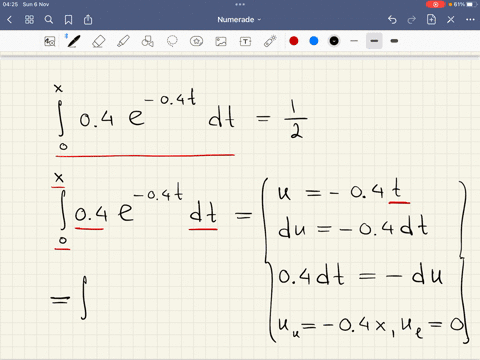 04:25 Sun 6 Nov
61%
Numerade
∫₀ˣ 0.4 e^{-0.4t} dt = 1/2
∫₀ˣ 0.4 e^{-0.4t} dt = ( u = -0.4t
du = -0.4dt
0.4dt = -du
= ∫
u_u = -0.4x, u_l = 0 )